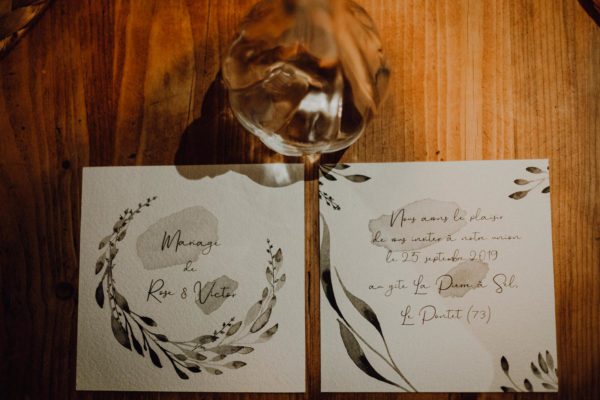 Mariage
de
Rose & Victor
Nous avons le plaisir
de vous inviter à notre union
le 25 septembre 2019
au gîte La Plum à Sel,
Le Pontet (73)